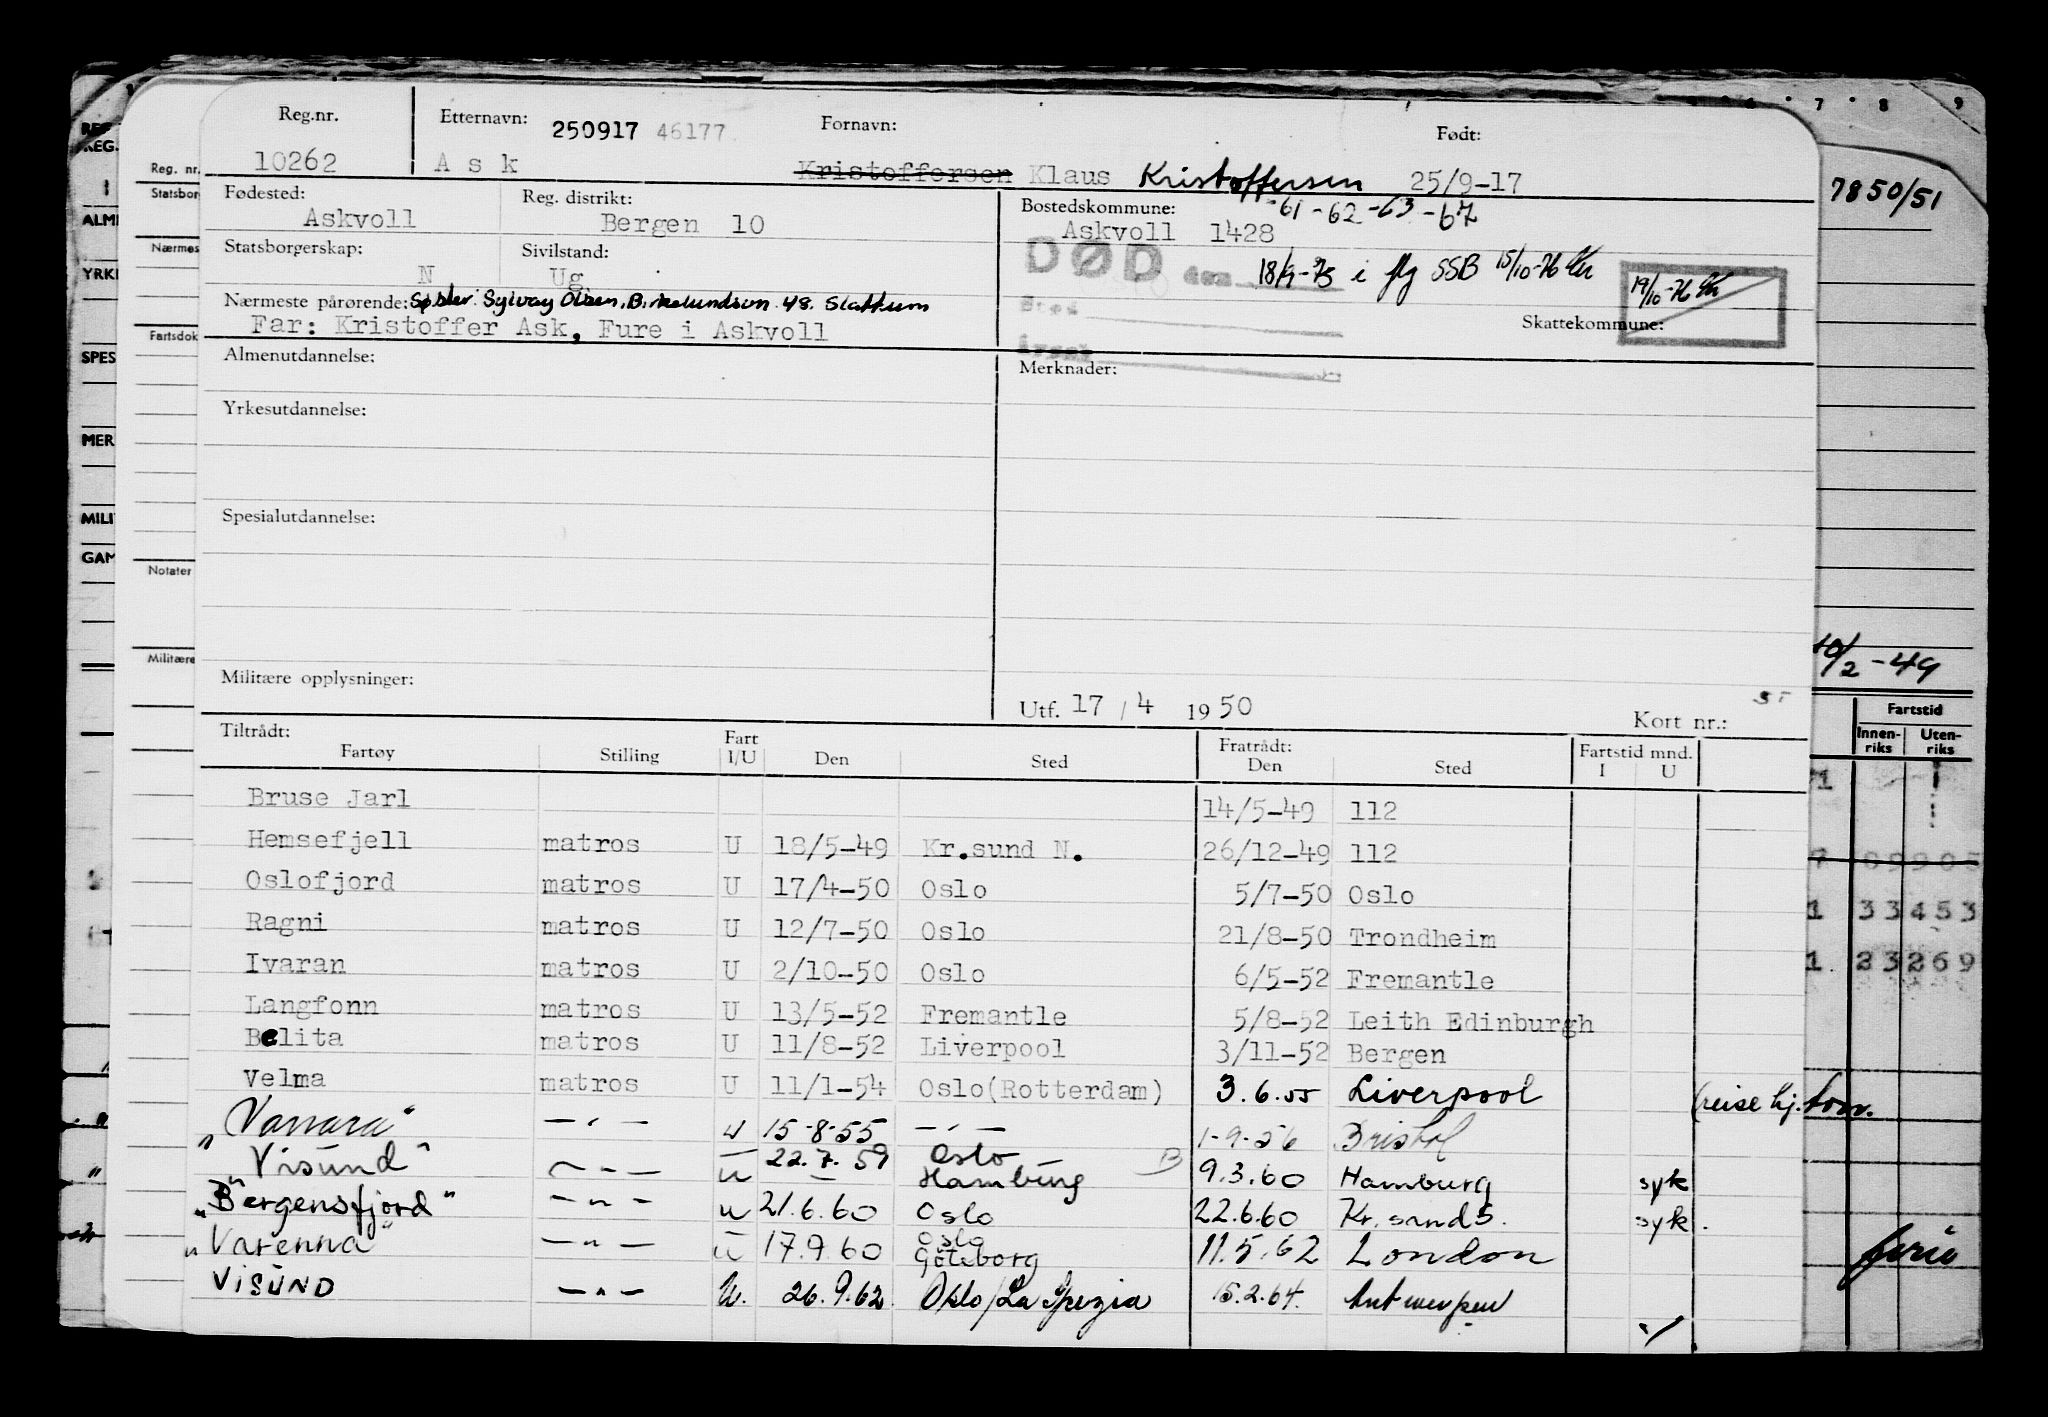 Reg.nr. Etternavn: 250917 46177 Fornavn: Født:
10262 Ask Kristoffersen Klaus Kristoffersen 25/9-17
Fødested: Reg. distrikt: Bostedskommune: -61-62-63-67
Askvoll Bergen 10 Askvoll 1428
Statsborgerskap: Sivilstand: DØD den 18/9-75 i flg SSB 15/10-76
N Ug. 19/10-76
Nærmeste pårørende: Søster: Sylvøy Olsen, Birkelundsvn 48. Slattum
Far: Kristoffer Ask, Fure i Askvoll Sted Skattekommune:
Almenutdannelse: Årsak Merknader:
Yrkesutdannelse:
Spesialutdannelse:
Militære opplysninger:
Utf. 17/4 1950 Kort nr.:
Tiltrådt: Fart Fratrådt: Fartstid mnd.
Fartøy Stilling I/U Den Sted Den Sted I U
Bruse Jarl 14/5-49 112
Hemsefjell matros U 18/5-49 Kr.sund N. 26/12-49 112
Oslofjord matros U 17/4-50 Oslo 5/7-50 Oslo
Ragni matros U 12/7-50 Oslo 21/8-50 Trondheim
Ivaran matros U 2/10-50 Oslo 6/5-52 Fremantle
Langfonn matros U 13/5-52 Fremantle 5/8-52 Leith Edinburgh
Belita matros U 11/8-52 Liverpool 3/11-52 Bergen
Velma matros U 11/1-54 Oslo(Rotterdam) 3.6.55 Liverpool (reise hj.
"Varrara" — " — u 15-8-55 — " — 1-9-56 Bristol
"Visund" — " — u 22.7.59 Oslo Hamburg 9.3.60 Hamburg syk
"Bergensfjord" — " — u 21.6.60 Oslo 22.6.60 Kr.sand S. syk.
"Varenna" — " — u 17.9.60 Oslo Göteborg 11.5.62 London
VISUND — " — U. 26.9.62 Oslo/La Spezia 15.2.64. Antwerpen
Reg. nr.
Nærmes
Fartsdok
Notater
Militære
REG.
ALM
YRK
SPES
MER
MILI
GAM
7 8 9
7850/51
10/2-49
Fartstid
Innen-riks Uten-riks
09905
1 33453
1 23269
ferie